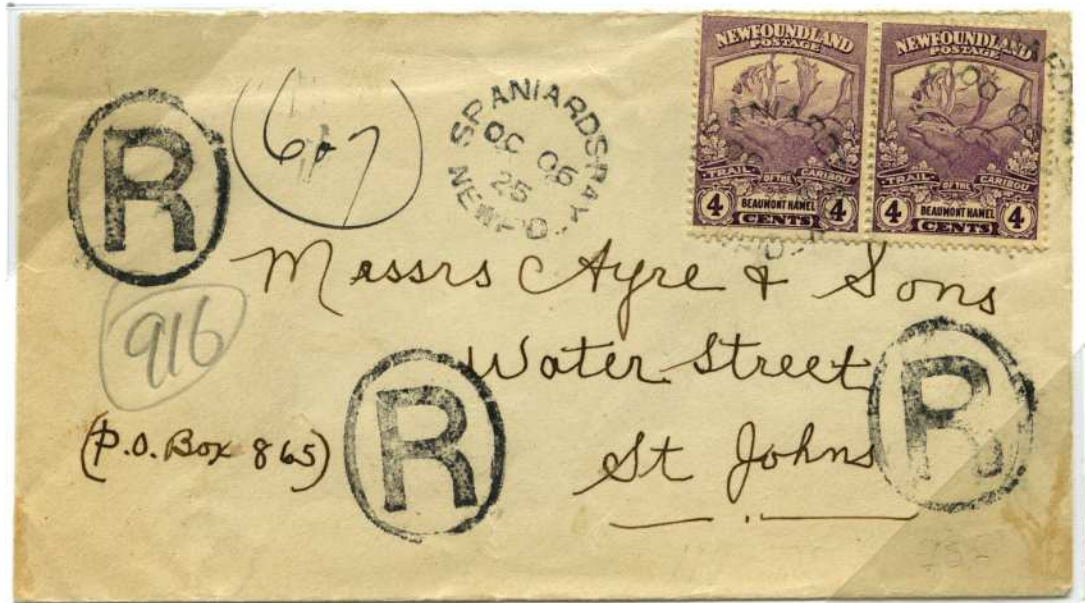 NEWFOUNDLAND POSTAGE
TRAIL OF THE CARIBOU
4 BEAUMONT HAMEL 4
CENTS
NEWFOUNDLAND POSTAGE
TRAIL OF THE CARIBOU
4 BEAUMONT HAMEL 4
CENTS
SPANIARDS BAY
OC 06
25
NEWF'D.
R
Messrs Ayre & Sons
Water Street
St Johns
916
(P.O. Box 865)
R
R